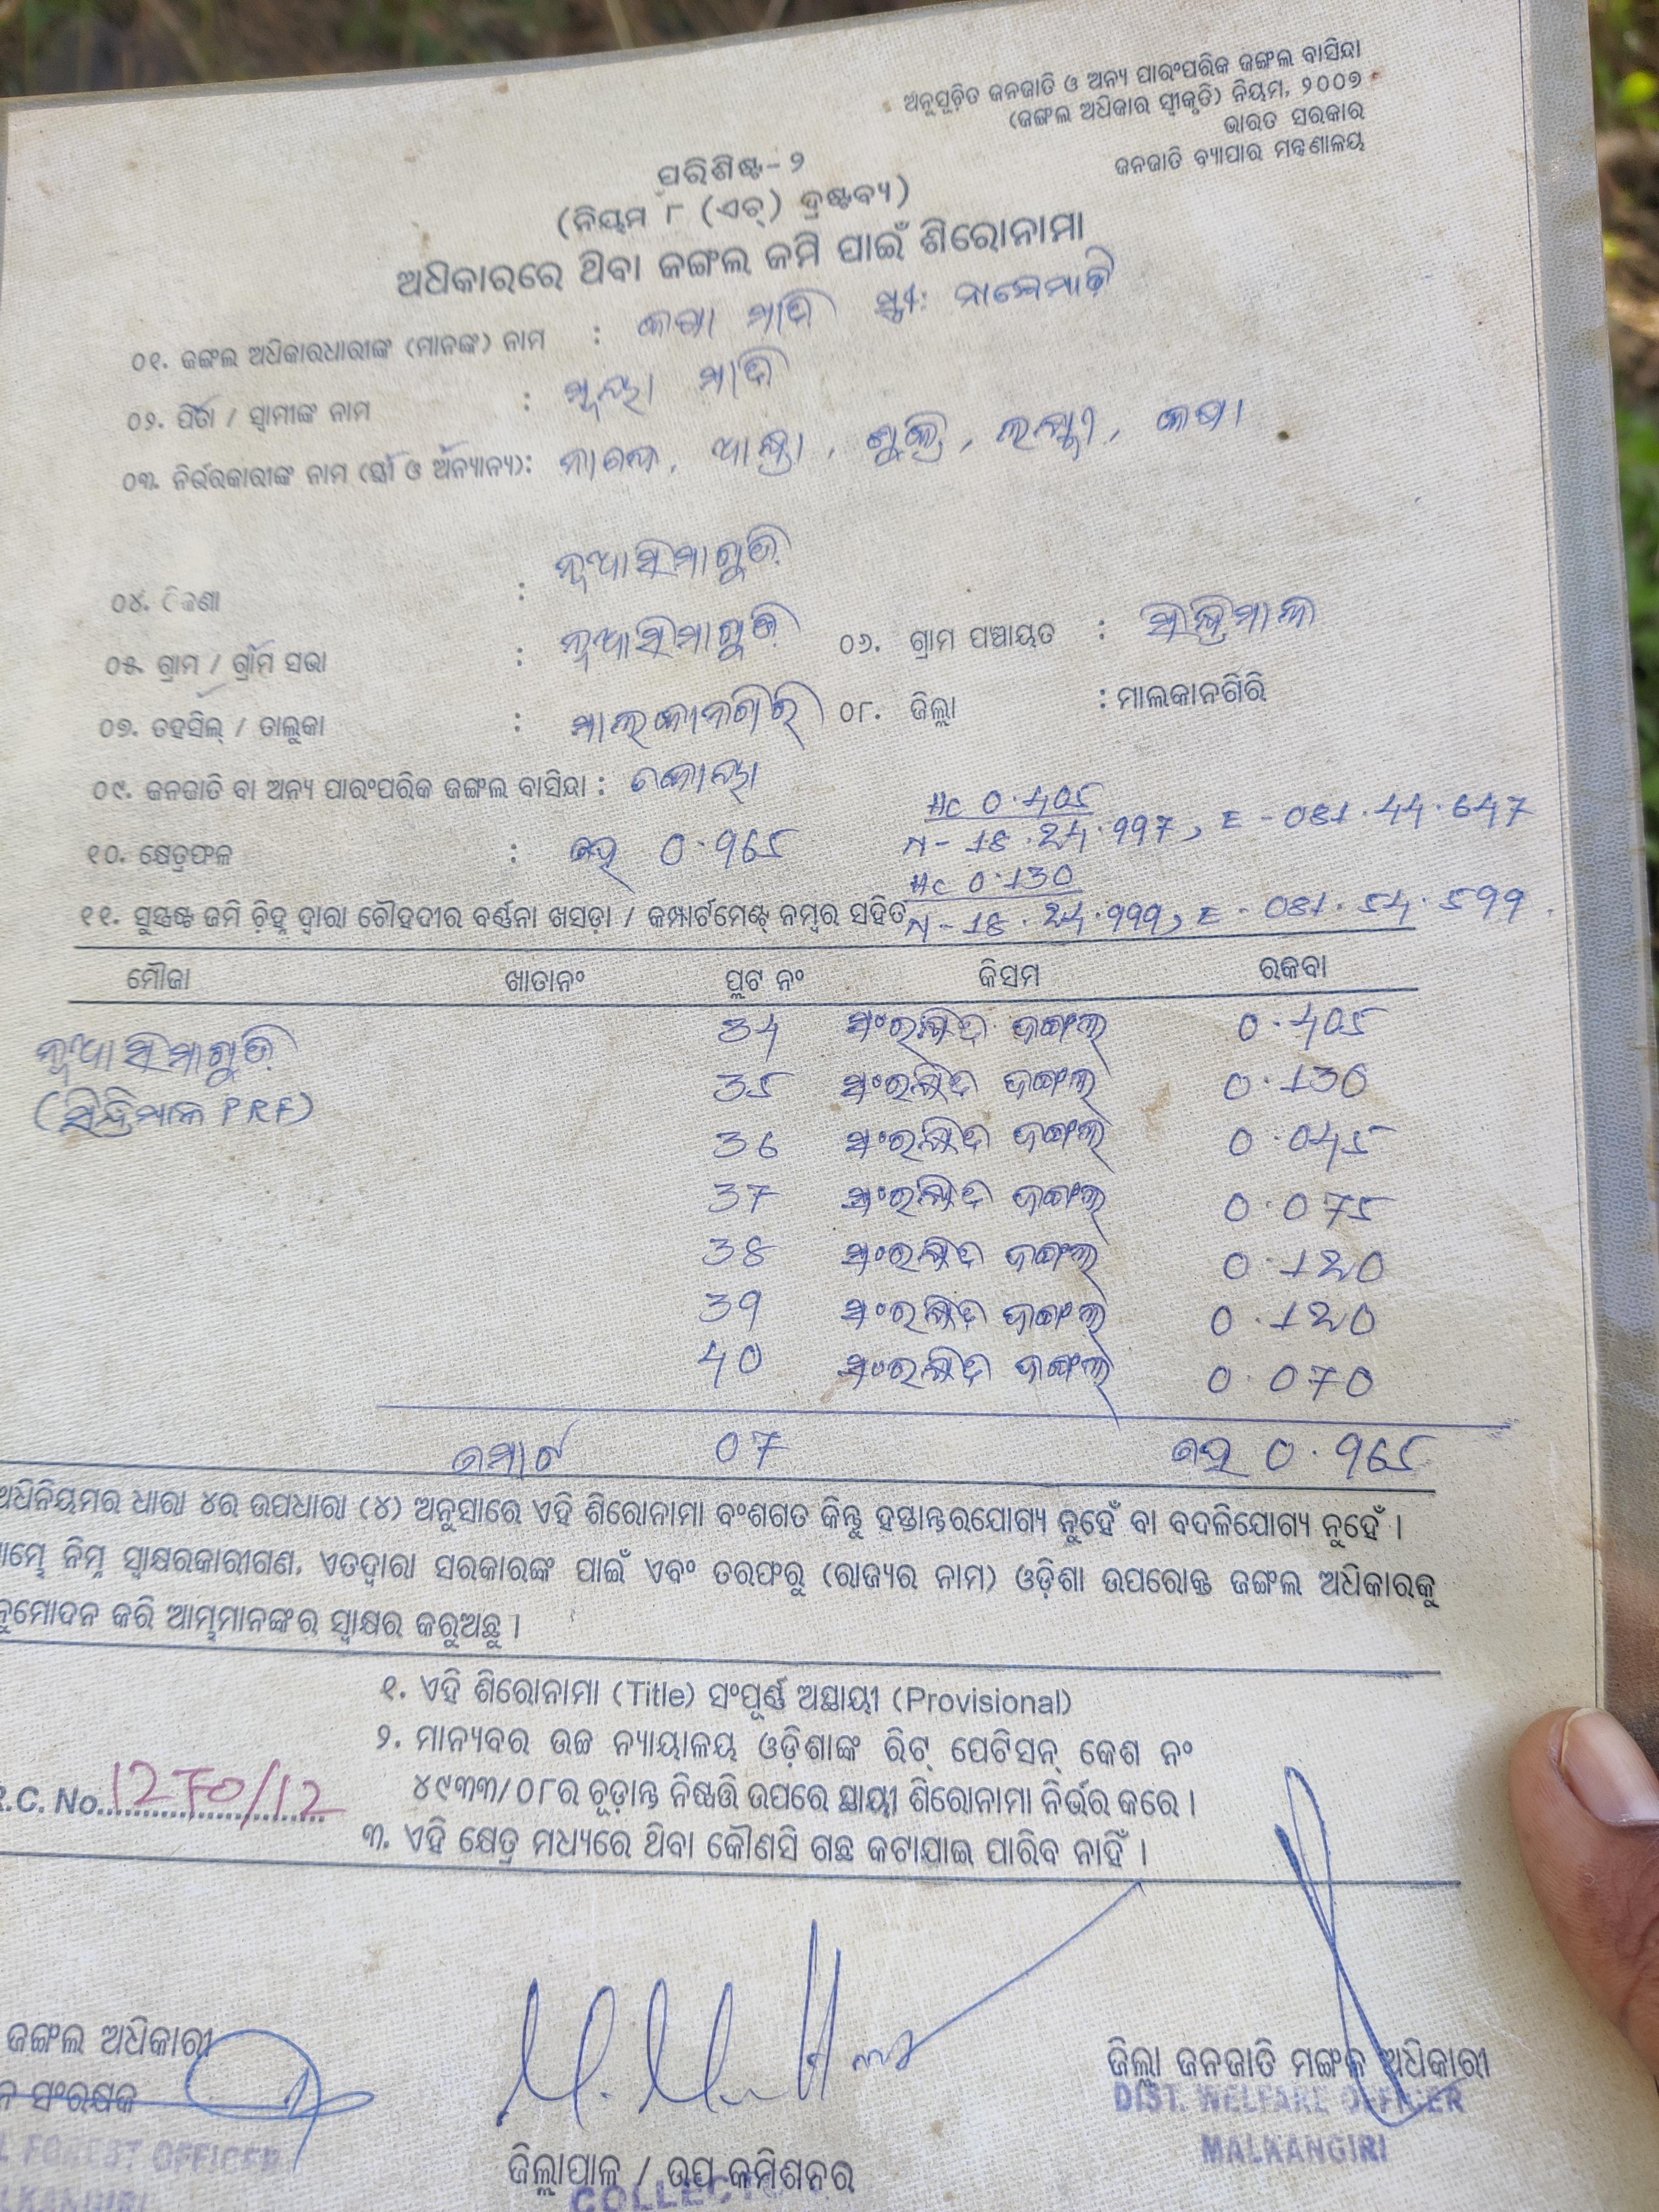 ଅନୁସୂଚିତ ଜନଜାତି ଓ ଅନ୍ୟ ପାରଂପରିକ ଜଙ୍ଗଲ ବାସିନ୍ଦା
(ଜଙ୍ଗଲ ଅଧିକାର ସ୍ୱୀକୃତି) ନିୟମ, ୨୦୦୭
ଭାରତ ସରକାର
ଜନଜାତି ବ୍ୟାପାର ମନ୍ତ୍ରଣାଳୟ
ପରିଶିଷ୍ଟ-୨
(ନିୟମ ୮ (ଏଚ୍) ଦ୍ରଷ୍ଟବ୍ୟ)
ଅଧିକାରରେ ଥିବା ଜଙ୍ଗଲ ଜମି ପାଇଁ ଶିରୋନାମା
୦୧. ଜଙ୍ଗଲ ଅଧିକାରଧାରୀଙ୍କ (ମାନଙ୍କ) ନାମ : ମାଦି ସ୍ତ୍ରୀ:
୦୨. ପିତା / ସ୍ୱାମୀଙ୍କ ନାମ : ମାଦି
୦୩. ନିର୍ଭରକାରୀଙ୍କ ନାମ (ସ୍ତ୍ରୀ ଓ ଅନ୍ୟାନ୍ୟ):
୦୪. ଠିକଣା : ନୂଆସିମାଗୁଡ଼ି
୦୫. ଗ୍ରାମ / ଗ୍ରାମ ସଭା : ନୂଆସିମାଗୁଡ଼ି ୦୬. ଗ୍ରାମ ପଞ୍ଚାୟତ : ସିନ୍ଦ୍ରିମାଳ
୦୭. ତହସିଲ୍ / ତାଲୁକା : ମାଲକାନଗିରି ୦୮. ଜିଲ୍ଲା : ମାଲକାନଗିରି
୦୯. ଜନଜାତି ବା ଅନ୍ୟ ପାରଂପରିକ ଜଙ୍ଗଲ ବାସିନ୍ଦା : କୋୟା
Hc 0.405
୧୦. କ୍ଷେତ୍ରଫଳ : ହେ 0.965 N-18.24.997, E-081.44.647
Hc 0.130
୧୧. ସୁସ୍ପଷ୍ଟ ଜମି ଚିହ୍ନ ଦ୍ୱାରା ଚୌହଦୀର ବର୍ଣ୍ଣନା ଖସଡ଼ା / କମ୍ପାର୍ଟମେଣ୍ଟ ନମ୍ବର ସହିତ N-18.24.999, E-081.54.599
ମୌଜା ଖାତାନଂ ପ୍ଲଟ ନଂ କିସମ ରକବା
ନୂଆସିମାଗୁଡ଼ି 34 ସଂରକ୍ଷିତ ଜଙ୍ଗଲ 0.405
(ସିନ୍ଦ୍ରିମାଳ PRF) 35 ସଂରକ୍ଷିତ ଜଙ୍ଗଲ 0.130
36 ସଂରକ୍ଷିତ ଜଙ୍ଗଲ 0.045
37 ସଂରକ୍ଷିତ ଜଙ୍ଗଲ 0.075
38 ସଂରକ୍ଷିତ ଜଙ୍ଗଲ 0.120
39 ସଂରକ୍ଷିତ ଜଙ୍ଗଲ 0.120
40 ସଂରକ୍ଷିତ ଜଙ୍ଗଲ 0.070
ମୋଟ 07 ହେ 0.965
ଅଧିନିୟମର ଧାରା ୪ର ଉପଧାରା (୪) ଅନୁସାରେ ଏହି ଶିରୋନାମା ବଂଶଗତ କିନ୍ତୁ ହସ୍ତାନ୍ତରଯୋଗ୍ୟ ନୁହେଁ ବା ବଦଳିଯୋଗ୍ୟ ନୁହେଁ ।
ାମ୍ଭେ ନିମ୍ନ ସ୍ୱାକ୍ଷରକାରୀଗଣ, ଏତଦ୍ୱାରା ସରକାରଙ୍କ ପାଇଁ ଏବଂ ତରଫରୁ (ରାଜ୍ୟର ନାମ) ଓଡ଼ିଶା ଉପରୋକ୍ତ ଜଙ୍ଗଲ ଅଧିକାରକୁ
ନୁମୋଦନ କରି ଆମ୍ଭମାନଙ୍କର ସ୍ୱାକ୍ଷର କରୁଅଛୁ ।
୧. ଏହି ଶିରୋନାମା (Title) ସଂପୂର୍ଣ୍ଣ ଅସ୍ଥାୟୀ (Provisional)
୨. ମାନ୍ୟବର ଉଚ୍ଚ ନ୍ୟାୟାଳୟ ଓଡ଼ିଶାଙ୍କ ରିଟ୍ ପେଟିସନ୍ କେଶ ନଂ
୪୯୩୩/୦୮ର ଚୂଡ଼ାନ୍ତ ନିଷ୍ପତ୍ତି ଉପରେ ସ୍ଥାୟୀ ଶିରୋନାମା ନିର୍ଭର କରେ ।
.C. No. 1270/12
୩. ଏହି କ୍ଷେତ୍ର ମଧ୍ୟରେ ଥିବା କୌଣସି ଗଛ କଟାଯାଇ ପାରିବ ନାହିଁ ।
ଜଙ୍ଗଲ ଅଧିକାରୀ
ନ ସଂରକ୍ଷକ
L FOREST OFFICER
LKANGIRI
ଜିଲ୍ଲାପାଳ / ଉପ କମିଶନର
COLLECT
ଜିଲ୍ଲା ଜନଜାତି ମଙ୍ଗଳ ଅଧିକାରୀ
DIST. WELFARE OFFICER
MALKANGIRI